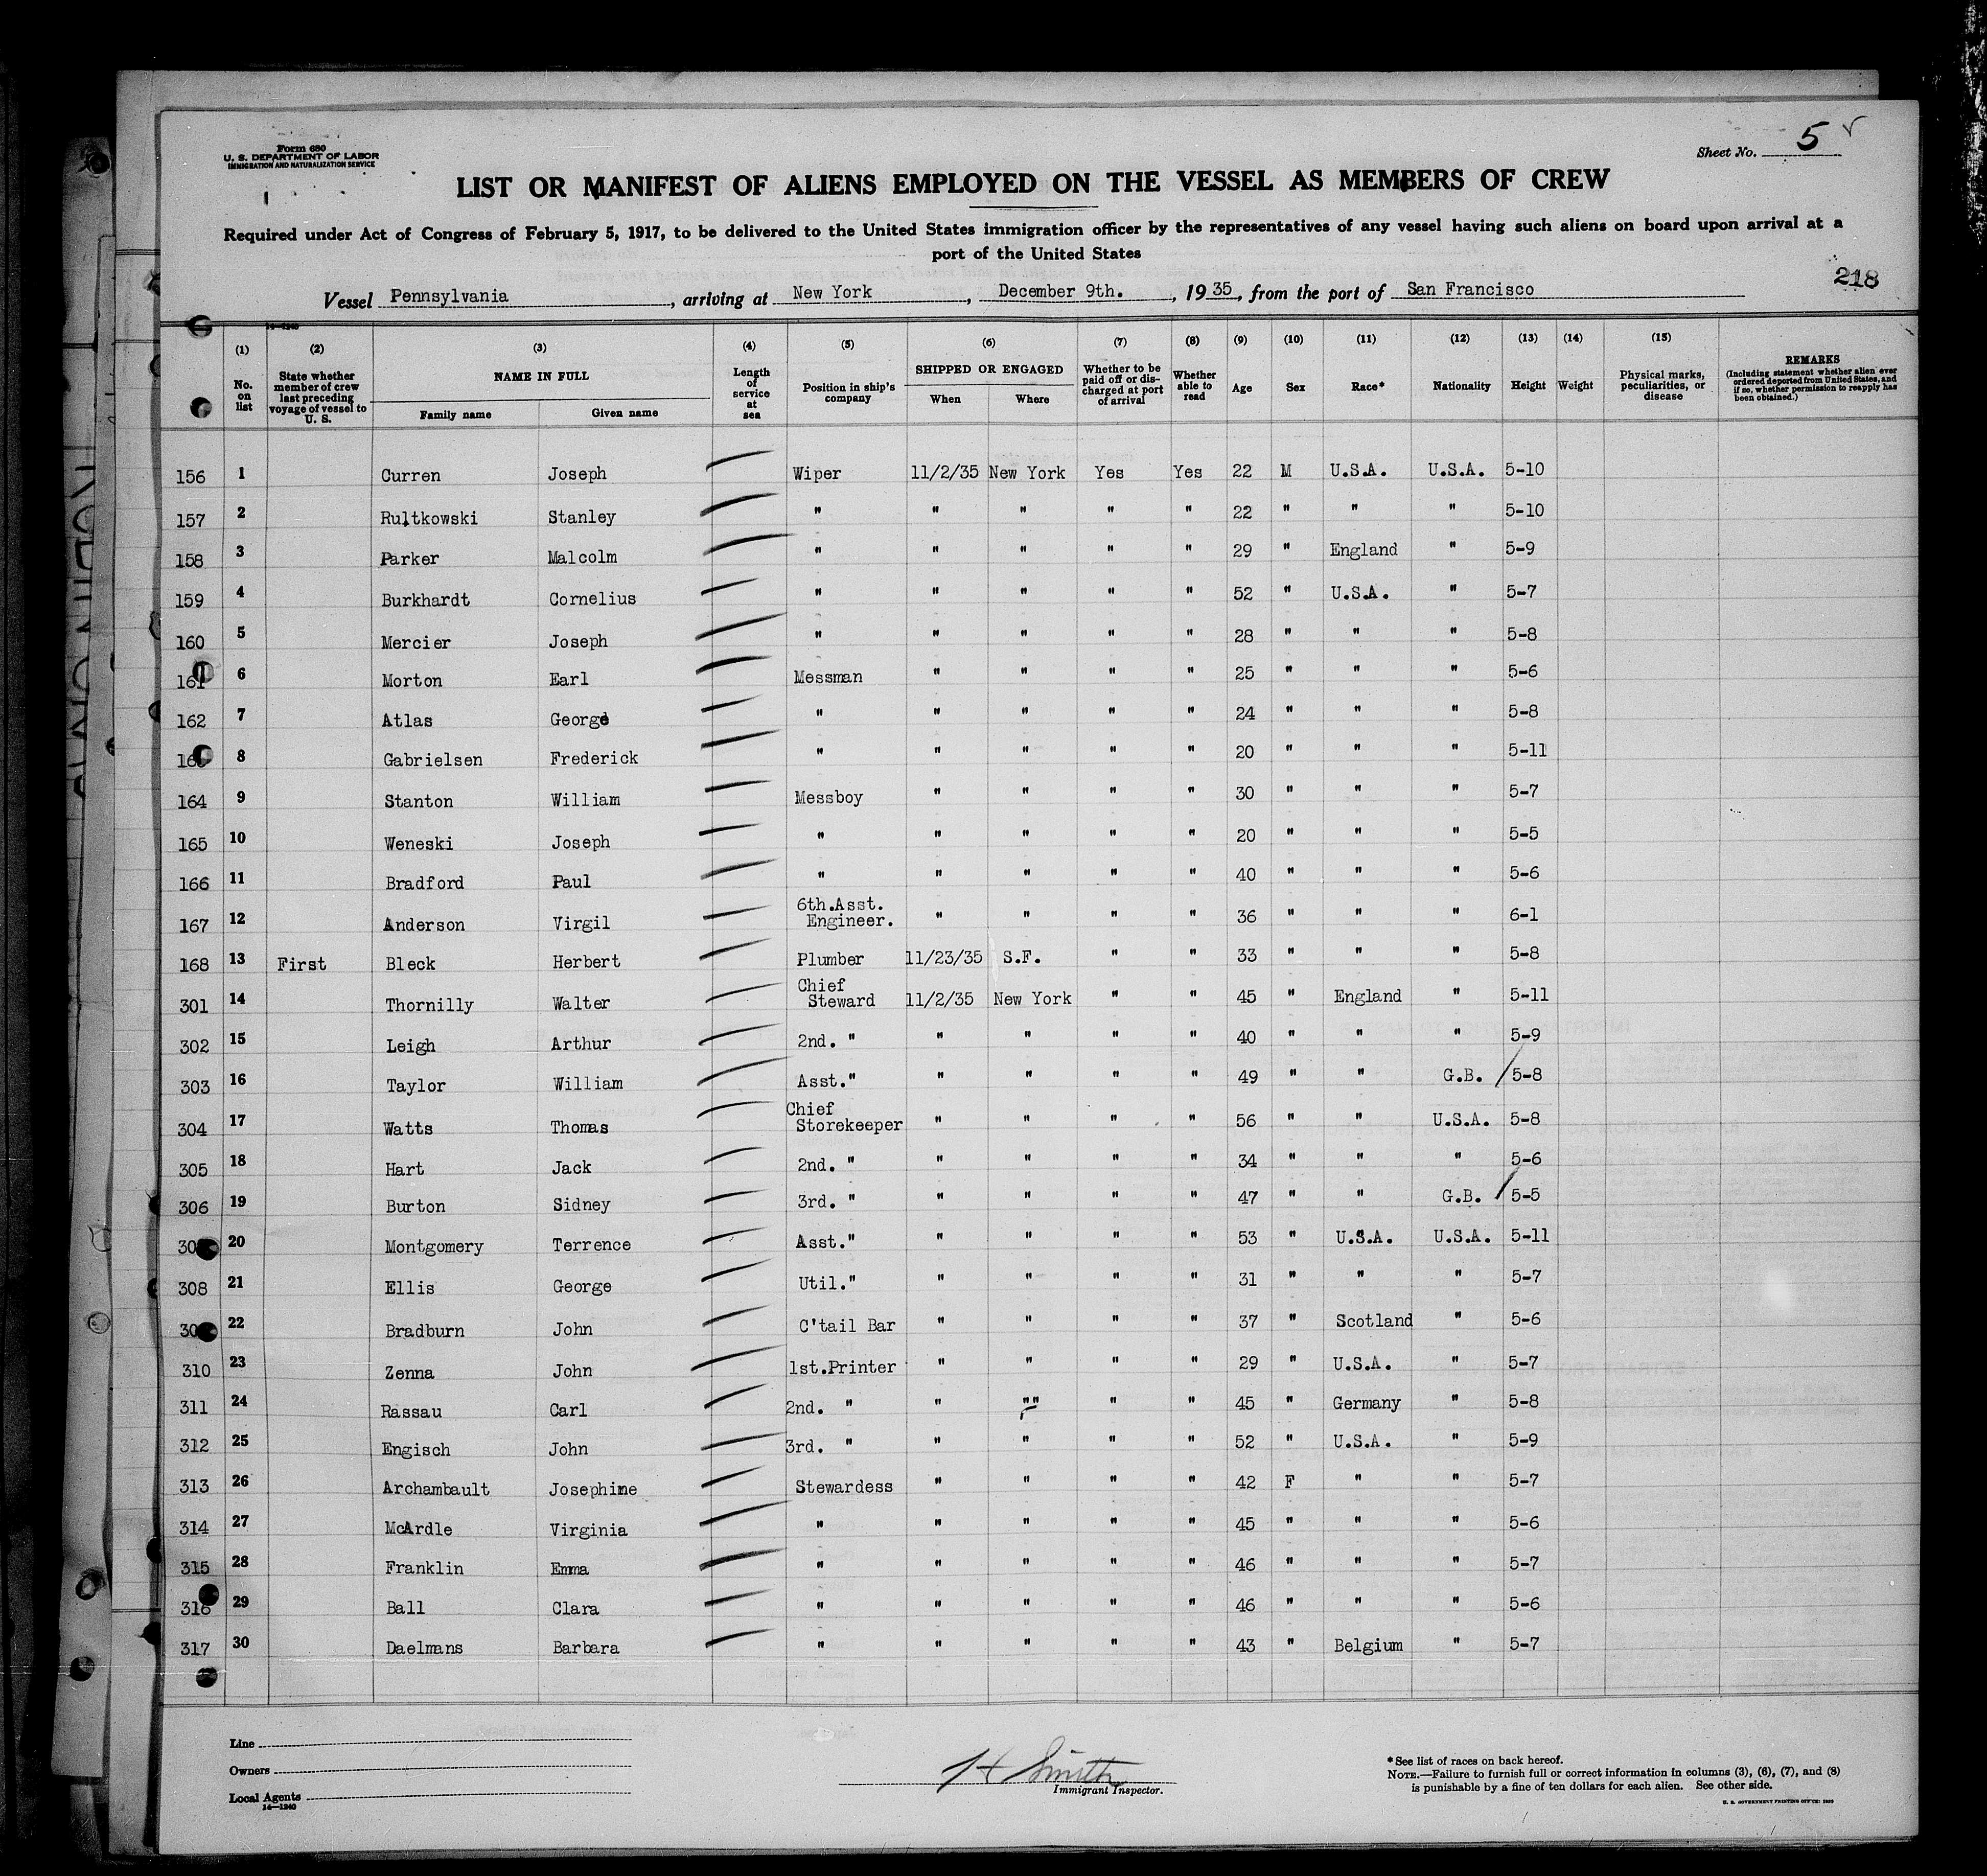 Form 680
U. S. DEPARTMENT OF LABOR
IMMIGRATION AND NATURALIZATION SERVICE
Sheet No. 5
LIST OR MANIFEST OF ALIENS EMPLOYED ON THE VESSEL AS MEMBERS OF CREW
Required under Act of Congress of February 5, 1917, to be delivered to the United States immigration officer by the representatives of any vessel having such aliens on board upon arrival at a
port of the United States
218
Vessel Pennsylvania, arriving at New York, December 9th., 1935, from the port of San Francisco
14—1240
(1) (2) (3) (4) (5) (6) (7) (8) (9) (10) (11) (12) (13) (14) (15)
No. on list
State whether member of crew last preceding voyage of vessel to U. S.
NAME IN FULL
Family name Given name
Length of service at sea
Position in ship's company
SHIPPED OR ENGAGED
When Where
Whether to be paid off or discharged at port of arrival
Whether able to read
Age
Sex
Race*
Nationality
Height
Weight
Physical marks, peculiarities, or disease
REMARKS
(Including statement whether alien ever ordered deported from United States, and if so, whether permission to reapply has been obtained.)
156 1 Curren Joseph Wiper 11/2/35 New York Yes Yes 22 M U.S.A. U.S.A. 5-10
157 2 Rultkowski Stanley " " " " " 22 " " " 5-10
158 3 Parker Malcolm " " " " " 29 " England " 5-9
159 4 Burkhardt Cornelius " " " " " 52 " U.S.A. " 5-7
160 5 Mercier Joseph " " " " " 28 " " " 5-8
161 6 Morton Earl Messman " " " " 25 " " " 5-6
162 7 Atlas George " " " " " 24 " " " 5-8
8 Gabrielsen Frederick " " " " " 20 " " " 5-11
164 9 Stanton William Messboy " " " " 30 " " " 5-7
165 10 Weneski Joseph " " " " " 20 " " " 5-5
166 11 Bradford Paul " " " " " 40 " " " 5-6
167 12 Anderson Virgil 6th.Asst. Engineer. " " " " 36 " " " 6-1
168 13 First Bleck Herbert Plumber 11/23/35 S.F. " " 33 " " " 5-8
301 14 Thornilly Walter Chief Steward 11/2/35 New York " " 45 " England " 5-11
302 15 Leigh Arthur 2nd. " " " " " 40 " " " 5-9
303 16 Taylor William Asst." " " " " 49 " " G.B. 5-8
304 17 Watts Thomas Chief Storekeeper " " " " 56 " " U.S.A. 5-8
305 18 Hart Jack 2nd. " " " " " 34 " " " 5-6
306 19 Burton Sidney 3rd. " " " " " 47 " " G.B. 5-5
20 Montgomery Terrence Asst." " " " " 53 " U.S.A. U.S.A. 5-11
308 21 Ellis George Util." " " " " 31 " " " 5-7
22 Bradburn John C'tail Bar " " " " 37 " Scotland " 5-6
310 23 Zenna John 1st.Printer " " " " 29 " U.S.A. " 5-7
311 24 Rassau Carl 2nd. " " "" " " 45 " Germany " 5-8
312 25 Engisch John 3rd. " " " " " 52 " U.S.A. " 5-9
313 26 Archambault Josephine Stewardess " " " " 42 F " " 5-7
314 27 McArdle Virginia " " " " " 45 " " " 5-6
315 28 Franklin Emma " " " " " 46 " " " 5-7
316 29 Ball Clara " " " " " 46 " " " 5-6
317 30 Daelmans Barbara " " " " " 43 " Belgium " 5-7
Line
Owners
Local Agents
14—1240
H Smith
Immigrant Inspector.
*See list of races on back hereof.
NOTE.—Failure to furnish full or correct information in columns (3), (6), (7), and (8)
is punishable by a fine of ten dollars for each alien. See other side.